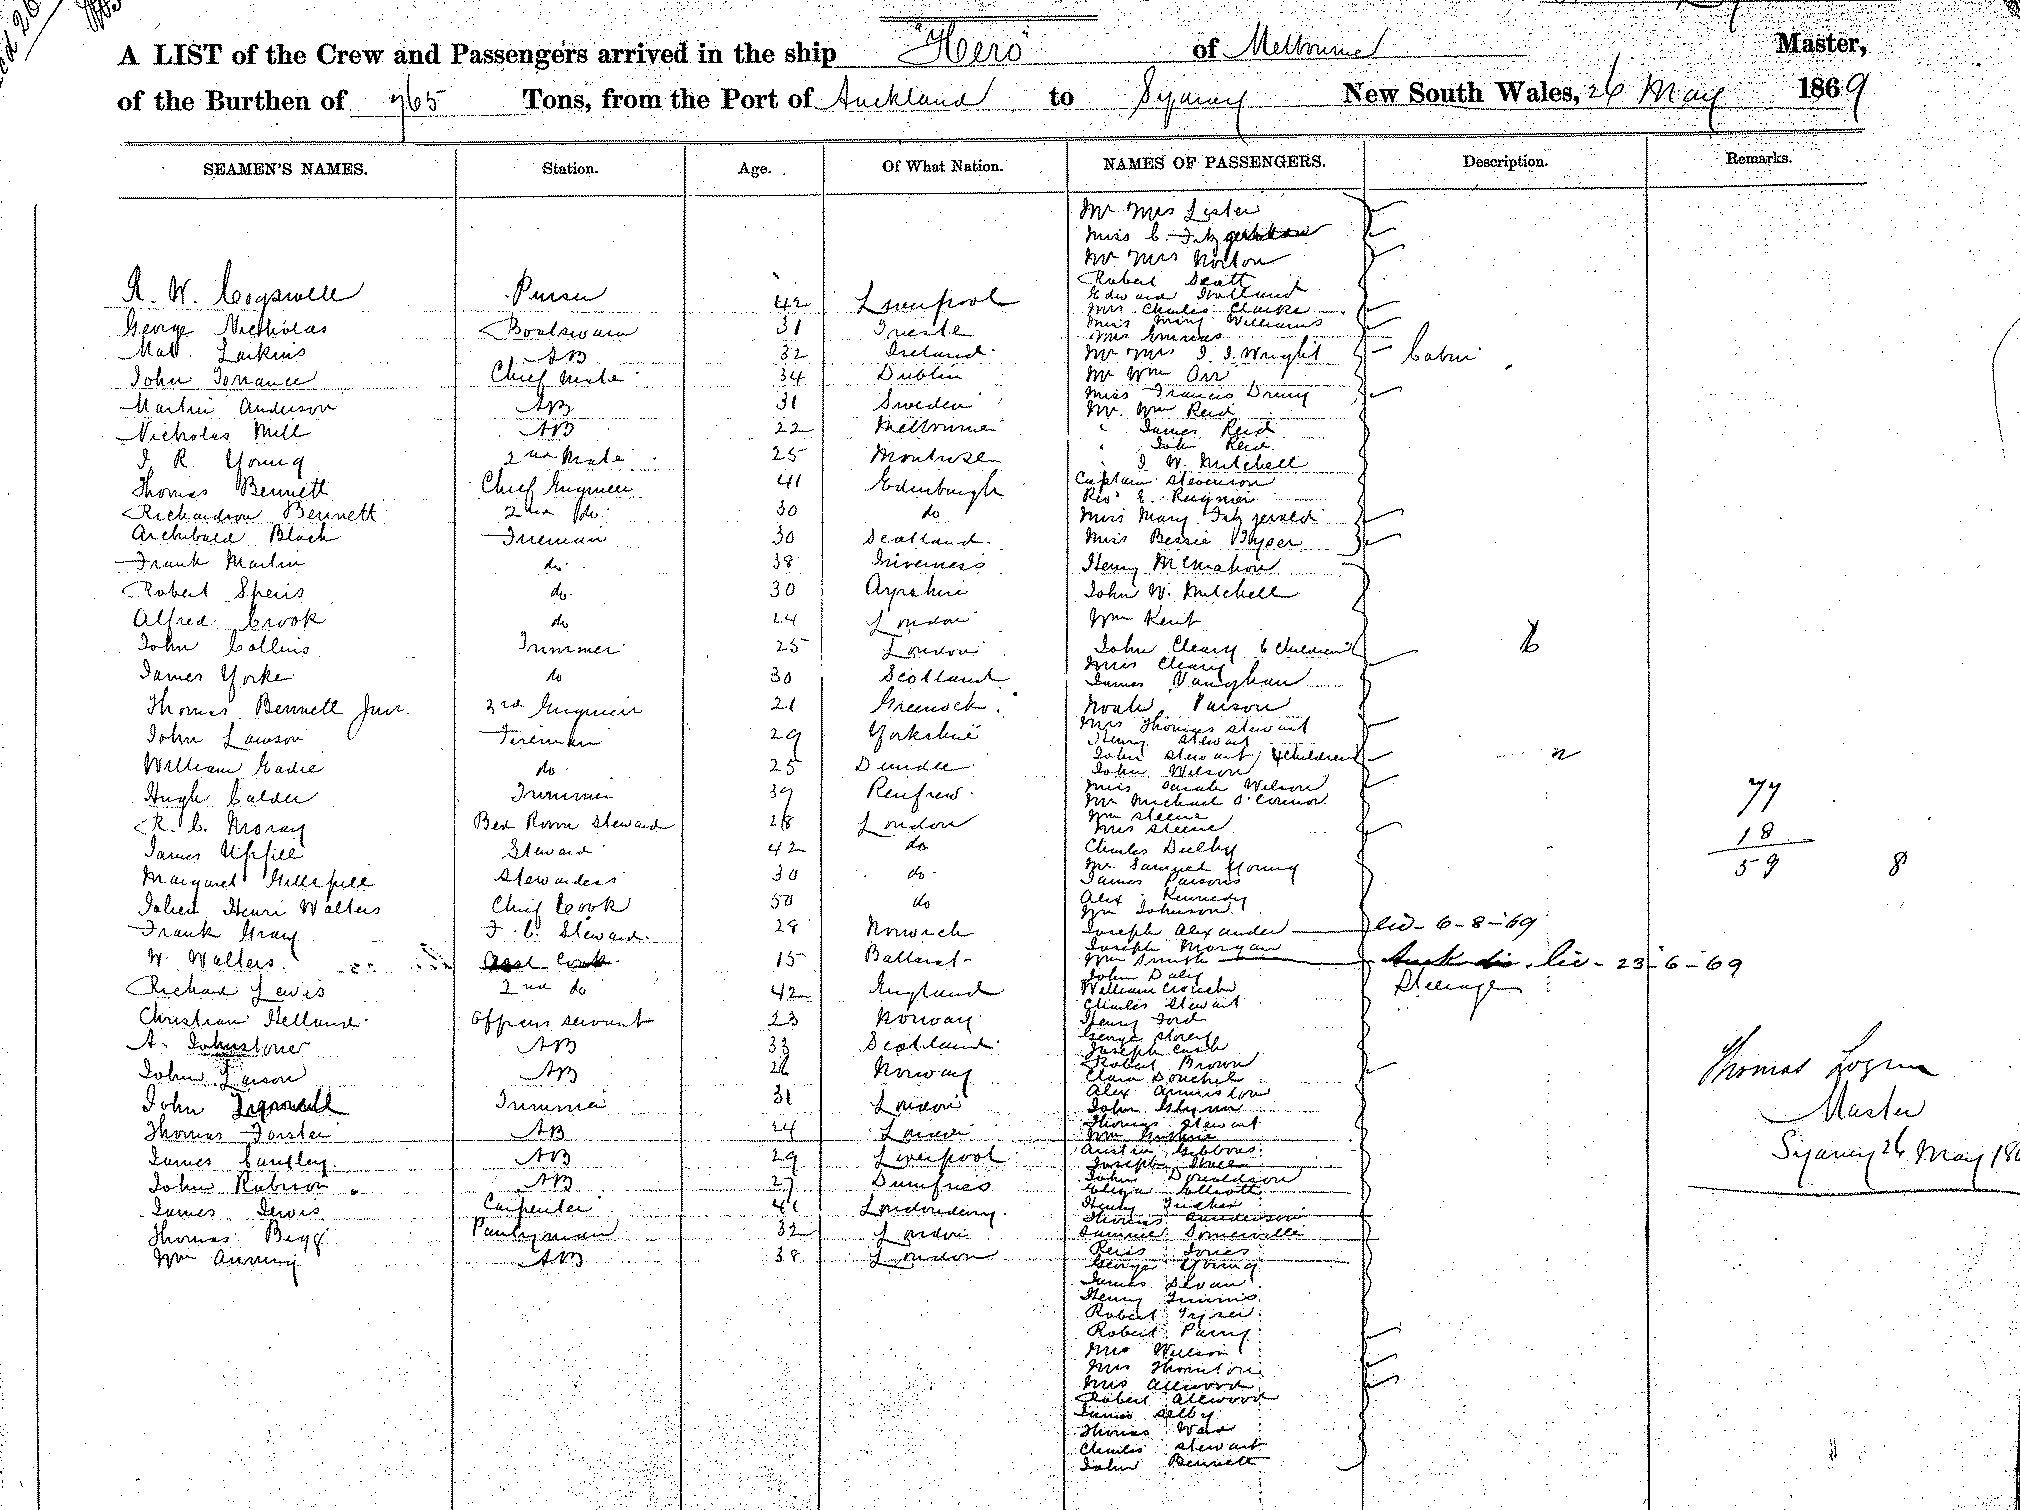 A LIST of the Crew and Passengers arrived in the ship "Hero" of Melbourne Master,
of the Burthen of 765 Tons, from the Port of Auckland to Sydney New South Wales, 26 May 1869
SEAMEN'S NAMES. Station. Age. Of What Nation. NAMES OF PASSENGERS. Description. Remarks.
R. W. Cogswell Purser 42 Liverpool
George Nicholas Boatswain 31 Trieste
Matt. Larkins AB 32 Ireland
John Torrance Chief Mate 34 Dublin
Martin Anderson AB 31 Sweden
Nicholas Mill AB 22 Melbourne
J. R. Young 2nd Mate 25 Montrose
Thomas Bennett Chief Engineer 41 Edinburgh
Richardson Bennett 2nd do 30 do
Archibald Black Fireman 30 Scotland
Frank Martin do 38 Inverness
Robert Speirs do 30 Ayrshire
Alfred Crook do 24 London
John Collins Trimmer 25 London
James Yorke do 30 Scotland
Thomas Bennett Junr. 3rd Engineer 21 Greenock
John Lawson Fireman 29 Yorkshire
William Eadie do 25 Dundee
Hugh Calder Trimmer 39 Renfrew
R. C. Moray Bed Room Steward 28 London
James Upfill Steward 42 do
Margaret Stewardess 30 do
Henri Walters Chief Cook 50 do
Frank Gray F. C. Steward 28 Norwich
W. Walters Cook 15 Ballarat
Richard Lewis 2nd do 42 England
Christian Helland Officers servant 23 Norway
A. Johnstone AB 33 Scotland
John Larson AB 26 Norway
John Trimmer 31 London
Thomas Forster AB 24 London
James AB 29 Liverpool
John Robison AB 27 Dumfries
James Carpenter 41 Londonderry
Thomas Begg Pantryman 32 London
Wm AB 38 London
Mr Mrs Lister
Miss C. Fitzgerald
Mr Mrs Norton
Robert Scott
Edward Holland
Mrs Charles Clarke
Miss Mary Williams
Mrs
Mr Mrs J. J. Wright Cabin
Mr Wm Orr
Miss Francis Drury
Mr. Wm Reid
" James Reid
" John Reid
" J. W. Mitchell
Captain Stevenson
Revd E.
Miss Mary Fitzgerald
Miss Bessie
Henry McMahon
John W. Mitchell
Wm Kent
John Cleary 6 children 6
Miss Cleary
James Vaughan
Noah Parson
Mrs Thomas Stewart
Henry Stewart
John Stewart
John Wilson
Miss Sarah Wilson
Mr Michael O'Connor
Wm Steene
Mrs Steene
Charles
Mr. Samuel Young
James Parsons
Alex Kennedy
Wm Johnson
Joseph Alexander lic- 6-8-69
Joseph Morgan
Wm Smith lic- 23-6-69
John Daly
William Crouch Steerage
Charles Stewart
Henry Ford
George
Joseph Cash
Robert Brown
Clara
Alex
John Glynn
Thomas Stewart
Wm
Austin Gibbons
Joseph
John Donaldson
Eliza Elliott
Henry
Thomas Anderson
Samuel Somerville
Rees Jones
George Young
James Sloan
Henry Timmis
Robert
Robert Parry
Mrs Wilson
Mrs Thornton
Mrs Allwood
Robert Allwood
James Selby
Thomas Ward
Charles Stewart
John Bennett
77
18
59 8
Thomas Logan
Master
Sydney 26 May